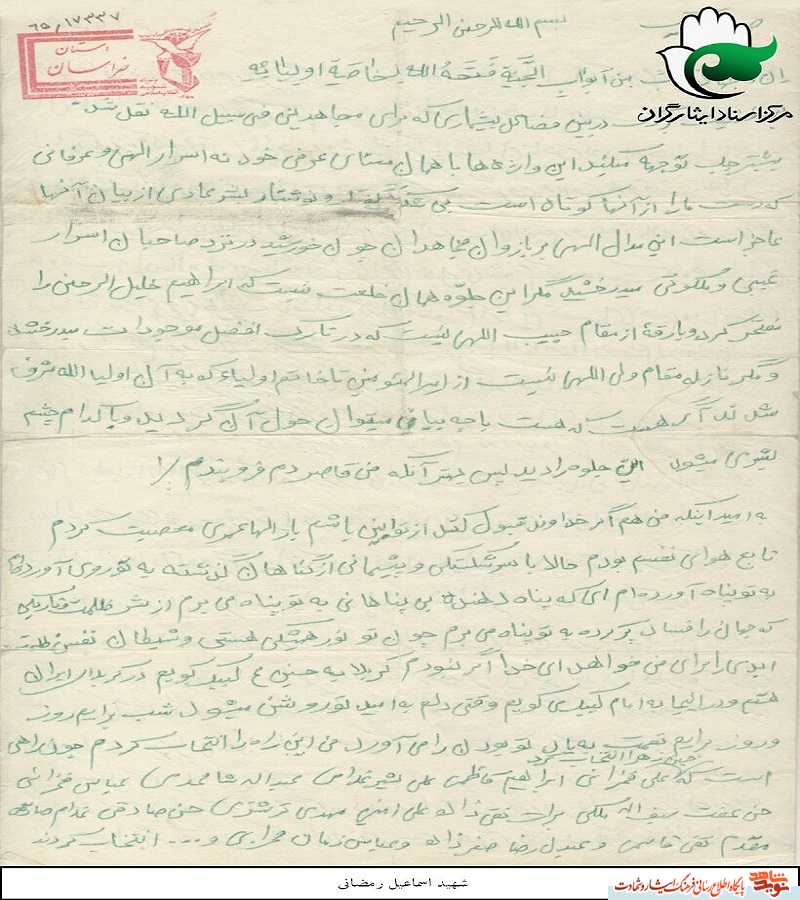 ۶۵/۱۷۳۳۷
بسم الله الرحمن الرحیم
استان
خراسان
مرکز اسناد ایثارگران
من ابواب الجنة فتحه الله لخاصة اولیائه
در بین فضائل بیشماری که برای مجاهدین فی سبیل الله نقل شد
بیشتر جلب توجه میکند این واژه ها با همان معنای عرفی خود نه اسرار الهی و عرفانی
که دست ما را از آنها کوتاه است بی شک و نوشتار بشر عادی از بیان آنها
عاجز است این مدال الهی بر بازوان مجاهدان چون خورشید در نزد صاحبان اسرار
غیبی و ملکوتی میدرخشد مگر این جلوه همان خلعت نیست که ابراهیم خلیل الرحمن را
مفتخر کرد و بارقه از مقام حبیب اللهی نیست که در تارک افضل موجودات میدرخشد
و مگر نازله مقام ولی اللهی نیست از امیرالمؤمنین تا خاتم اولیاء که به آن اولیا الله مشرف
شده اند آن هست که هست با چه بیانی میتوان حول آن گردید و با کدام چشم
بشری میشود این جلوه را دید پس بهتر آنکه من قاصر دم فرو بندم
به امید اینکه من هم اگر خداوند قبول کند از توابین باشم بارالها عمری معصیت کردم
تابع هوای نفسم بودم حالا با سرشکستگی و پشیمانی از گناهان گذشته به تو روی آورده‌ام
به تو پناه آورده ام ای که پناه دهنده بی پناهانی به تو پناه می برم از شر ظلمت و تاریکی
که جهان را فساد پر کرده به تو پناه می برم چون تو نور همیشگی هستی و شیطان نفس ظلمت
ابدی را برای من خواهد ای خدا اگر نبودم کربلا به حسین ع لبیک گویم در کربلای ایران
هستم و در اینجا به امام لبیک می گویم وقتی دلم به امید تو روشن میشود شب برایم روز
و روز برایم نعمت به یاد تو بودن را می آورد من این راه را انتخاب کردم چون راهی
حسین زهرا انتخاب کرد
است که علی فخرائی ابراهیم کاظمی علی عبدالله شامحمدی عباس فخرائی
حسن عفت سیف اله ملکی برات نقی زاده علی مهدی حسن صادقی
مقدم تقی قاسمی و عبدل رضا صفرزاده و عباس و ... انتخاب کردند
شهید اسماعیل رمضانی
نوید شاهد
پایگاه اطلاع رسانی فرهنگ ایثار و شهادت